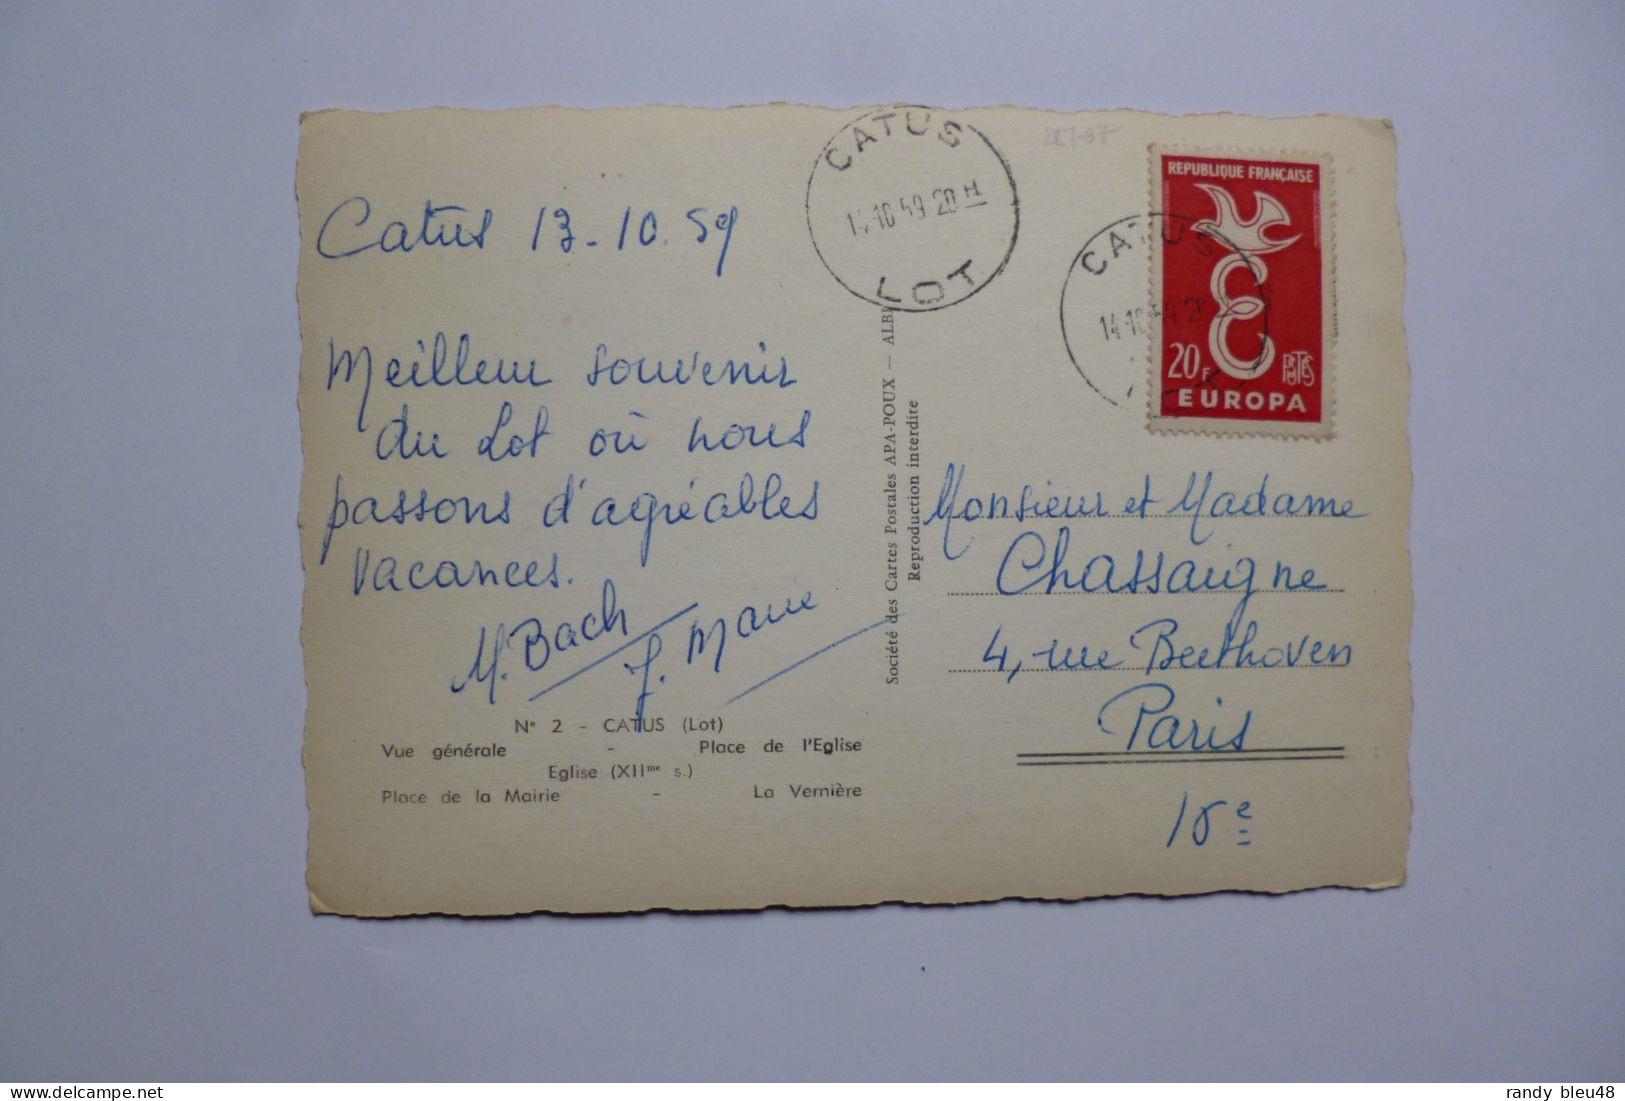 Catus 13-10.59
Meilleur souvenir
du Lot où nous
passons d'agréables
vacances.
M. Bach
J.
N° 2 - CATUS (Lot)
Vue générale - Place de l'Eglise
Eglise (XIIme s.)
Place de la Mairie - La Vernière
Société des Cartes Postales APA-POUX — ALBI
Reproduction interdite
CATUS
14-10 59 20 H
LOT
CATUS
14-10 59 20
REPUBLIQUE FRANÇAISE
20F
POSTES
EUROPA
Monsieur et Madame
Chassaigne
4, rue Beethoven
Paris
16e
randy bleu48